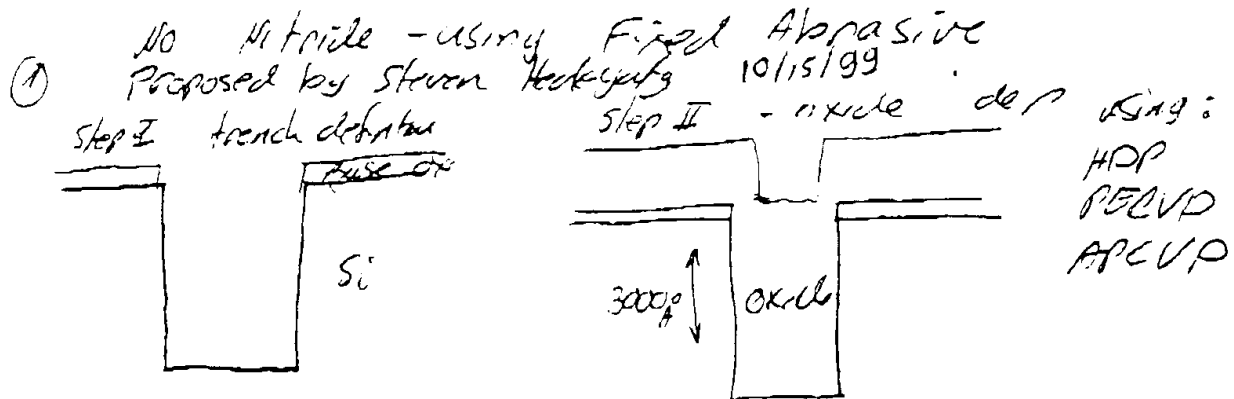 No Nitride - using Fixed Abrasive
① Proposed by Steven 10/15/99
Step I trench definition
Step II - oxide dep using:
HDP
PECVD
APCVD
ox
Si
3000Å
oxide